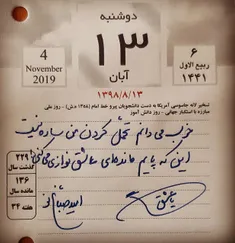 دوشنبه
4
November
2019
۱۳
آبان
۶
ربیع الاول
۱۴۴۱
۱۳۹۸/۸/۱۳
تسخیر لانه جاسوسی آمریکا به دست دانشجویان پیرو خط امام (۱۳۵۸ ه.ش) - روز ملی
مبارزه با استکبار جهانی - روز دانش آموز
خوب می دانم تحمل کردن من ساده نیست
این که پایم مانده‌ای عاشق نوازی می کنی
۲۲۹
گذشت سال
۱۳۶
مانده سال
هفته ۳۴